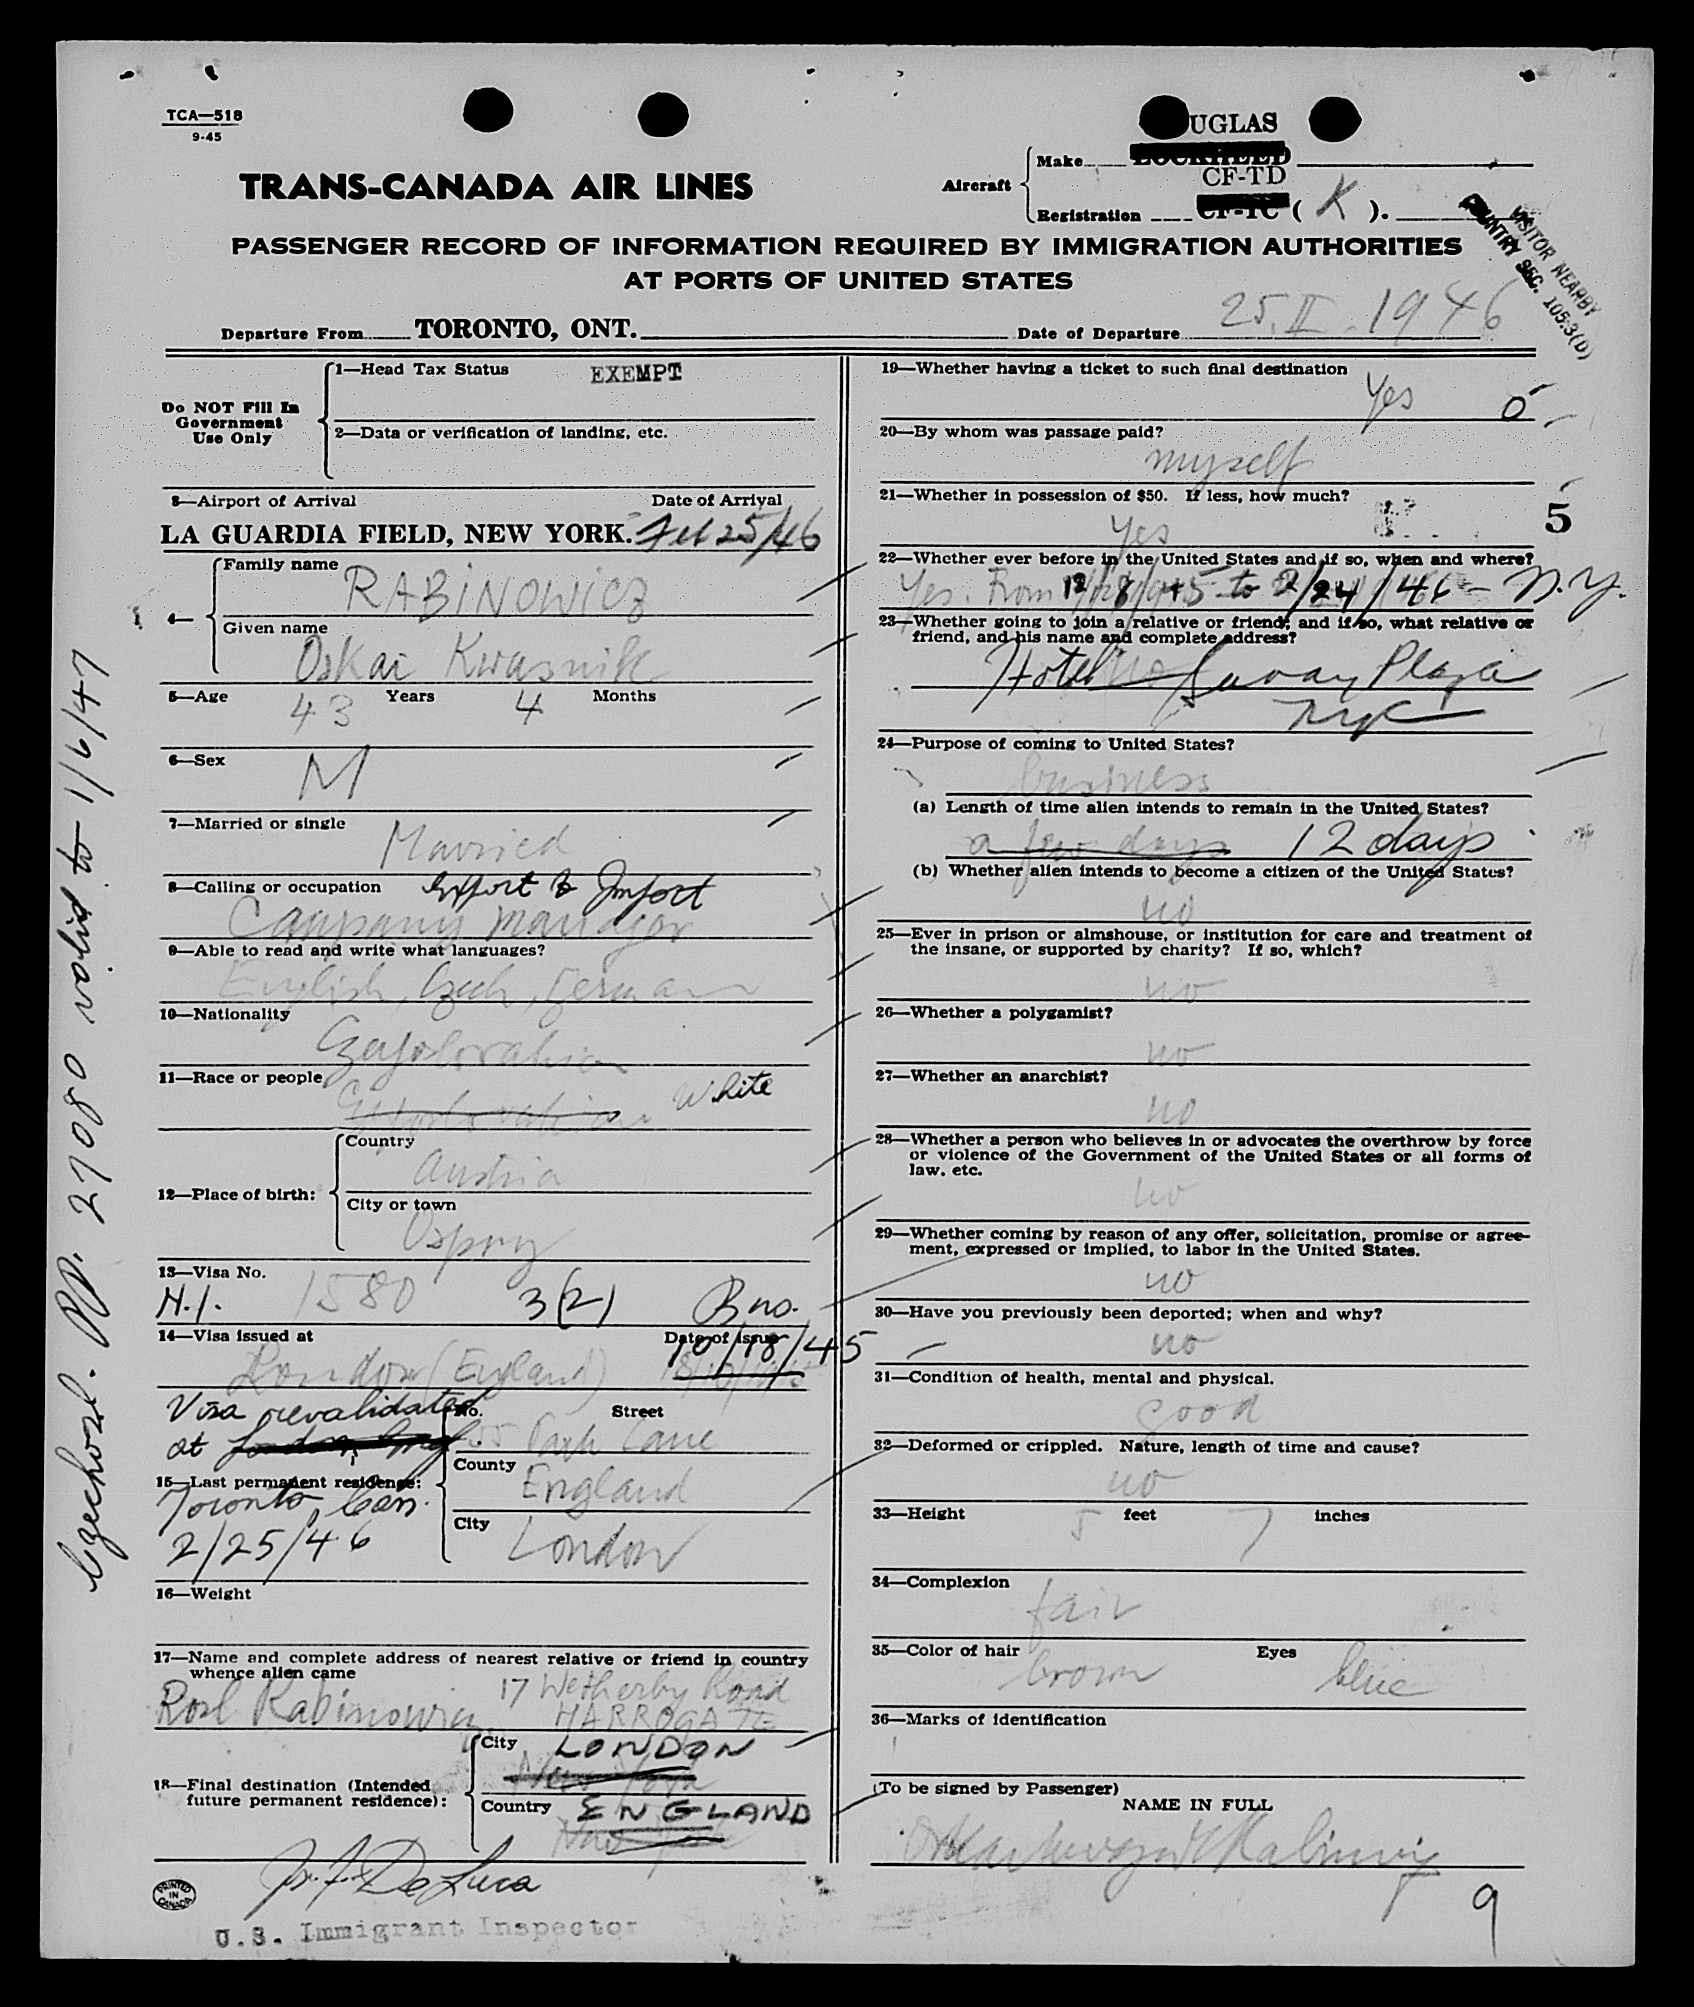 TCA—518
9-45
UGLAS
Aircraft
Make
LOCKHEED
CF-TD
Registration CF-TC ( K ).
TRANS-CANADA AIR LINES
VISITOR NEARBY
COUNTRY SEC. 105.3(D)
PASSENGER RECORD OF INFORMATION REQUIRED BY IMMIGRATION AUTHORITIES
AT PORTS OF UNITED STATES
Departure From TORONTO, ONT. Date of Departure 25.II.1946
Do NOT Fill In
Government
Use Only
1—Head Tax Status EXEMPT
2—Data or verification of landing, etc.
3—Airport of Arrival Date of Arrival
LA GUARDIA FIELD, NEW YORK. Feb 25/46
4—
Family name
RABINOWICZ
Given name
Oskar Kwasnik
5—Age 43 Years 4 Months
6—Sex M
7—Married or single
Married
8—Calling or occupation Export & Import
Company manager
9—Able to read and write what languages?
English, Czech, German
10—Nationality
Czechoslovakian
11—Race or people White
12—Place of birth:
Country
Austria
City or town
13—Visa No.
N.I. 1580 3(2) Bus.
14—Visa issued at Date of issue
London (England) 10/18/45
Visa revalidated
at London, Engl.
15—Last permanent residence:
Toronto, Can.
2/25/46
No. Street
55 Park Lane
County
England
City
London
16—Weight
17—Name and complete address of nearest relative or friend in country
whence alien came
Rosl Rabinowicz 17 Wetherby Road
HARROGATE
18—Final destination (Intended
future permanent residence):
City LONDON
New York
Country ENGLAND
New York
De Luca
U.S. Immigrant Inspector
PRINTED
IN
CANADA
19—Whether having a ticket to such final destination
Yes 0
20—By whom was passage paid?
myself
21—Whether in possession of $50. If less, how much?
yes 5
22—Whether ever before in the United States and if so, when and where?
Yes. From 12/8/45 to 2/24/46 - N.Y.
23—Whether going to join a relative or friend; and if so, what relative or
friend, and his name and complete address?
Hotel Savoy Plaza
NYC
24—Purpose of coming to United States?
business
(a) Length of time alien intends to remain in the United States?
a few days 12 days
(b) Whether alien intends to become a citizen of the United States?
no
25—Ever in prison or almshouse, or institution for care and treatment of
the insane, or supported by charity? If so, which?
no
26—Whether a polygamist?
no
27—Whether an anarchist?
no
28—Whether a person who believes in or advocates the overthrow by force
or violence of the Government of the United States or all forms of
law, etc.
no
29—Whether coming by reason of any offer, solicitation, promise or agree-
ment, expressed or implied, to labor in the United States.
no
30—Have you previously been deported; when and why?
no
31—Condition of health, mental and physical.
good
32—Deformed or crippled. Nature, length of time and cause?
no
33—Height 5 feet 7 inches
34—Complexion
fair
35—Color of hair Eyes
brown blue
36—Marks of identification
(To be signed by Passenger)
NAME IN FULL
9
Czechosl. PP. 27080 valid to 1/6/47